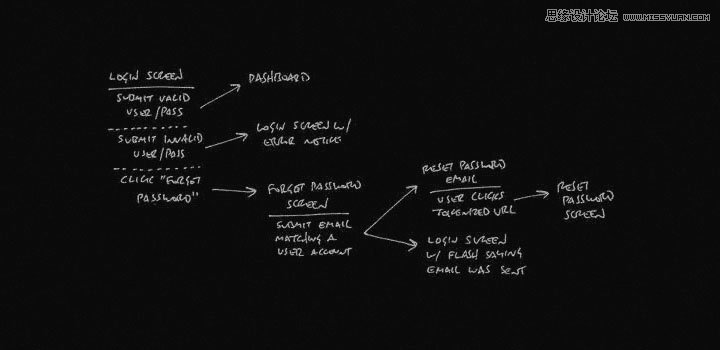 思缘设计论坛 WWW.MISSYUAN.COM
LOGIN SCREEN
SUBMIT VALID
USER/PASS
DASHBOARD
SUBMIT INVALID
USER/PASS
LOGIN SCREEN W/
ERROR NOTICE
CLICK "FORGET
PASSWORD"
FORGOT PASSWORD
SCREEN
SUBMIT EMAIL
MATCHING A
USER ACCOUNT
RESET PASSWORD
EMAIL
USER CLICKS
TOKENIZED URL
RESET
PASSWORD
SCREEN
LOGIN SCREEN
W/ FLASH SAYING
EMAIL WAS SENT